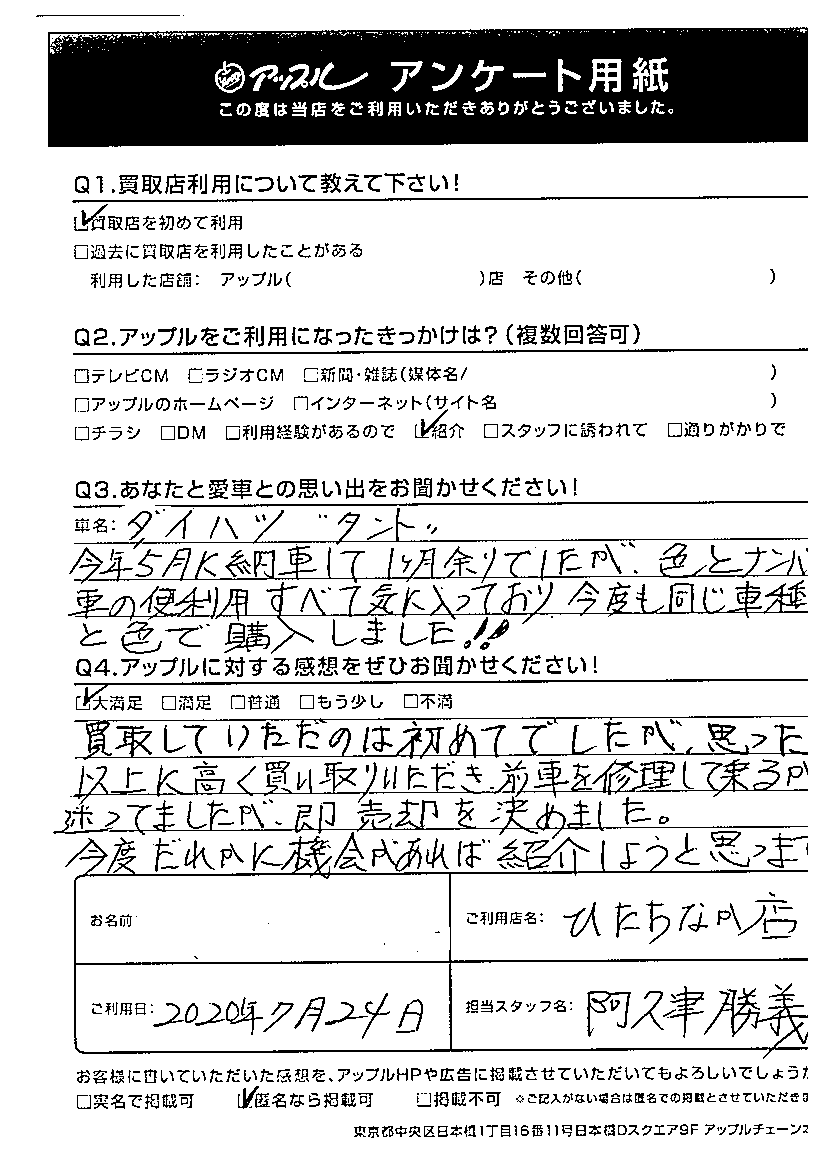 アップル アンケート用紙
この度は当店をご利用いただきありがとうございました。
Q1.買取店利用について教えて下さい!
☑買取店を初めて利用
□過去に買取店を利用したことがある
利用した店舗: アップル( )店 その他( )
Q2.アップルをご利用になったきっかけは?(複数回答可)
□テレビCM □ラジオCM □新聞・雑誌(媒体名/ )
□アップルのホームページ □インターネット(サイト名 )
□チラシ □DM □利用経験があるので ☑紹介 □スタッフに誘われて □通りがかりで
Q3.あなたと愛車との思い出をお聞かせください!
車名: ダイハツ "タント"
今年5月に納車して1ヶ月余りでしたが、色とナンバ
車の便利用すべて気に入っており今度も同じ車種
と色で購入しました!!
Q4.アップルに対する感想をぜひお聞かせください!
☑大満足 □満足 □普通 □もう少し □不満
買取していただのは初めてでしたが、思った
以上に高く買い取りいただき、前車を修理して乗るか
迷ってましたが、即売却を決めました。
今度だれかに機会があれば紹介しようと思っます
お名前
ご利用店名: ひたちなか店
ご利用日: 2020年7月24日
担当スタッフ名: 阿久津勝義
お客様に書いていただいた感想を、アップルHPや広告に掲載させていただいてもよろしいでしょうか
□実名で掲載可 ☑匿名なら掲載可 □掲載不可 ※ご記入がない場合は匿名での掲載とさせていただきま
東京都中央区日本橋1丁目16番11号日本橋Dスクエア9F アップルチェーン本